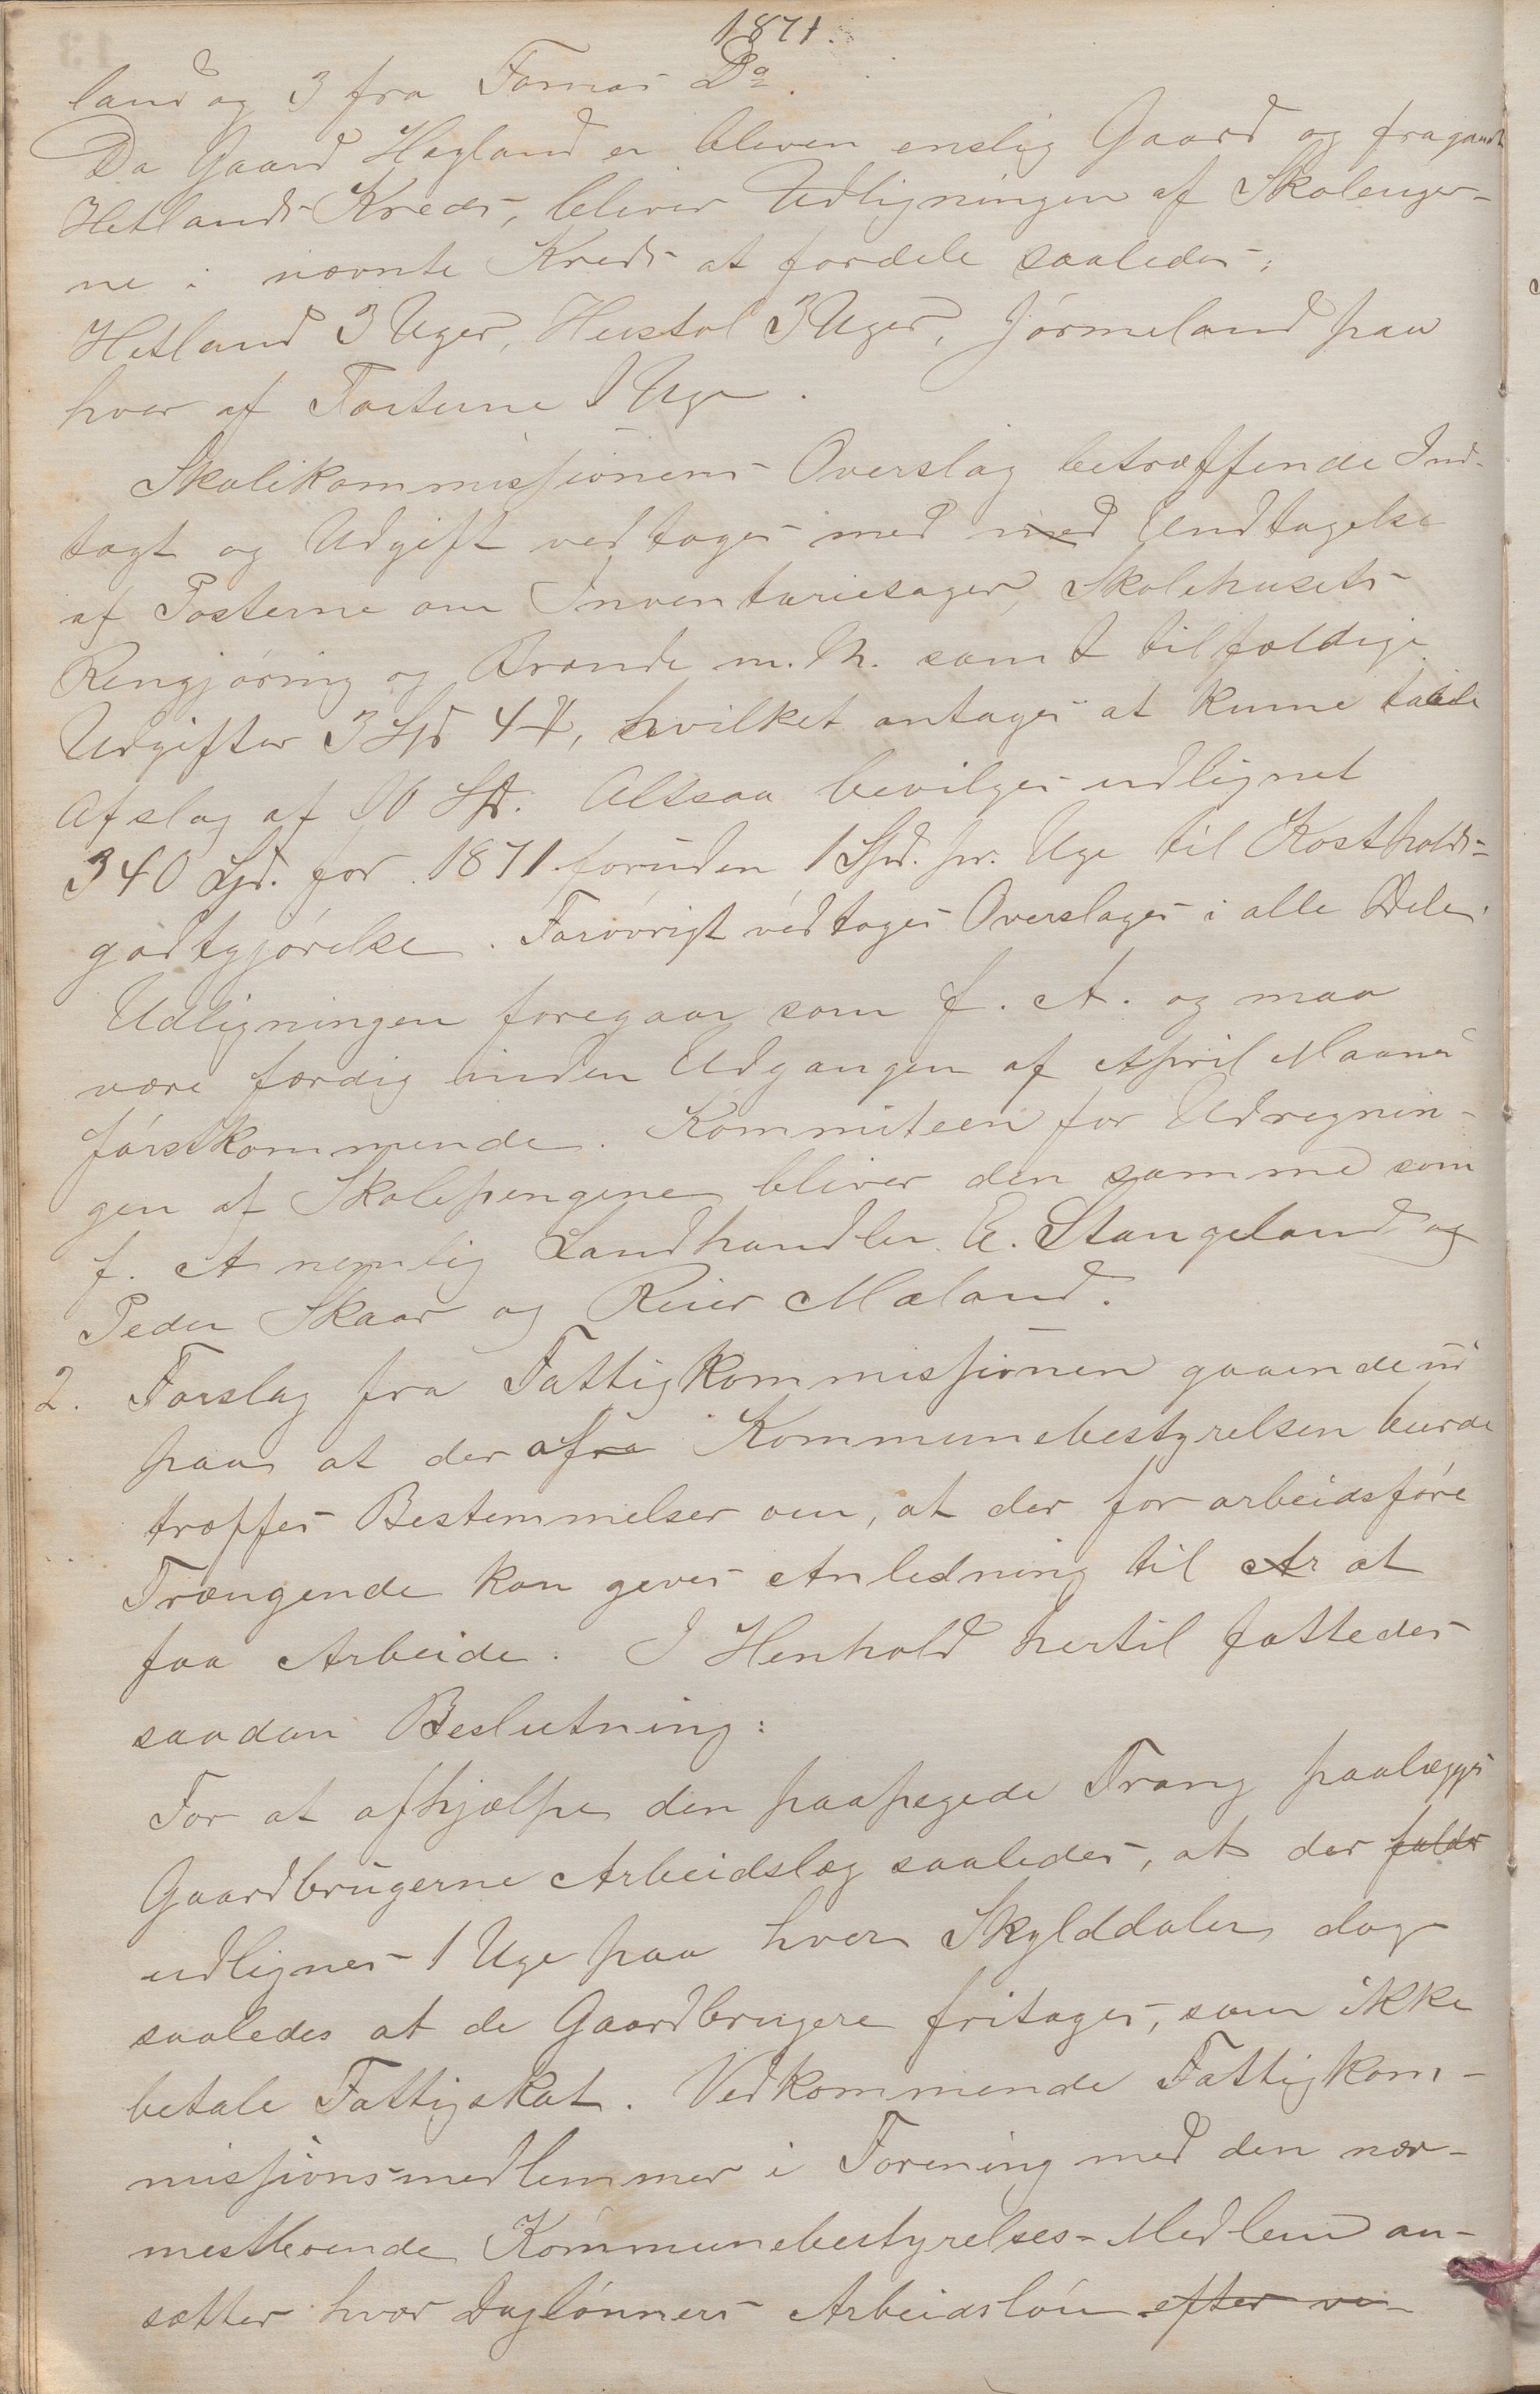 1871.
land og 3 fra Fornæs Do.
Da Gaard Hegland er bleven enslig Gaard og fragaaet
Hetlands Kreds, bliver Udligningen af Skoleuger-
ne i nævnte Kreds at fordele saaledes:
Hetland 3 Uger, Hustol 3 Uger, Jørmeland paa
hver af Parterne 1 Uge.
Skolekommissionens Overslag betræffende Ind-
tægt og Udgift vedtages med med Undtagelse
af Posterne om Inventariesager, Skolehusets
Rengjøring og Brænde m. M. samt tilfældige
Udgifter 3 Spd 4 , hvilket antages at kunne taale
Afslag af 10 Spd. Altsaa bevilges udlignet
340 Spd. for 1871 foruden 1 Spd. pr. Uge til Kostholds-
godtgjørelse. Forøvrigt vedtages Overslaget i alle Dele.
Udligningen foregaar som f. A. og maa
være færdig inden Udgangen af April Maaned
førstkommende. Kommiteen for Udregnin-
gen af Skolepengene bliver den samme som
f. A nemlig Landhandler E. Stangeland og
Peder Skaar og Reier Mæland.
2. Forslag fra Fattigkommissionen gaaende ud
paa at der afra Kommunebestyrelsen burde
træffes Bestemmelser om, at der for arbeidsføre
Trængende kan gives Anledning til Ar at
faa Arbeide. I Henhold hertil fattedes
saadan Beslutning:
For at afhjælpe den paapegede Trang paalægges
Gaardbrugerne Arbeidslæg saaledes, at der falder
udlignes 1 Uge paa hver Skylddaler dog
saaledes at de Gaardbrugere fritages, som ikke
betale Fattigskat. Vedkommende Fattigkom-
missionsmedlemmer i Forening med den nær-
mestboende Kommunebestyrelses-Medlem an-
sætter hver Daglønners Arbeidsløn efter ve-